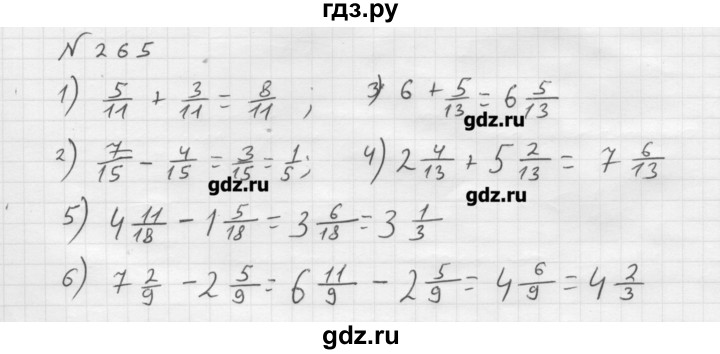 гдз.ру
№ 265
1) 5/11 + 3/11 = 8/11 ; 3) 6 + 5/13 = 6 5/13
gdz.ru
2) 7/15 - 4/15 = 3/15 = 1/5; 4) 2 4/13 + 5 2/13 = 7 6/13
gdz.ru gdz.ru
5) 4 11/18 - 1 5/18 = 3 6/18 = 3 1/3
6) 7 2/9 - 2 5/9 = 6 11/9 - 2 5/9 = 4 6/9 = 4 2/3
gdz.ru